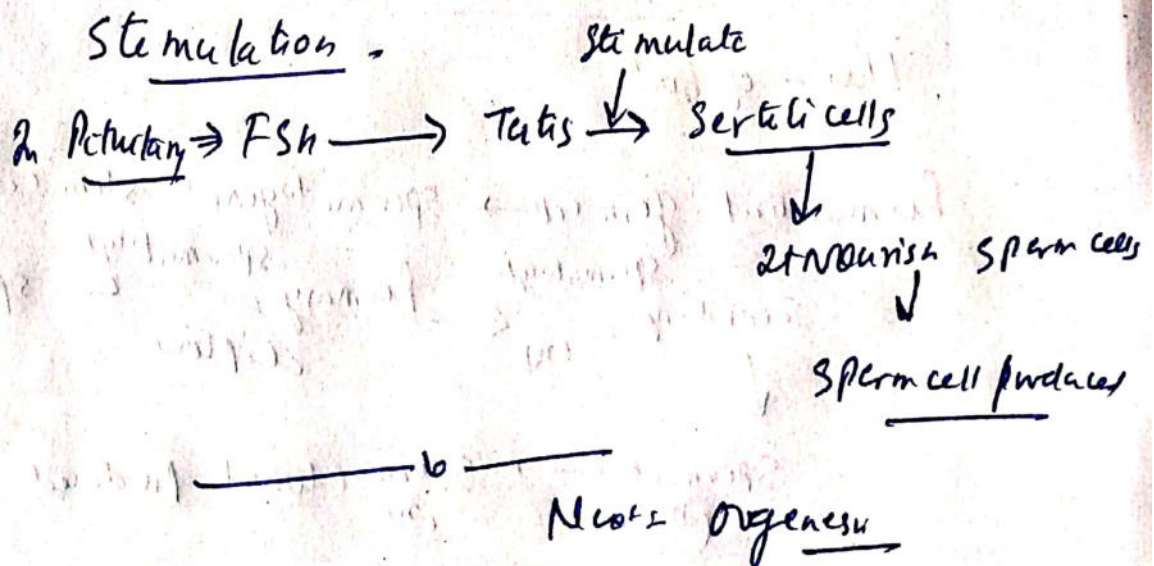 Stimulation .
Stimulate
In Pituitary ⇒ FSH → Testis → Sertoli cells
It Nourish sperm cells
Sperm cell produces
Oogenesis